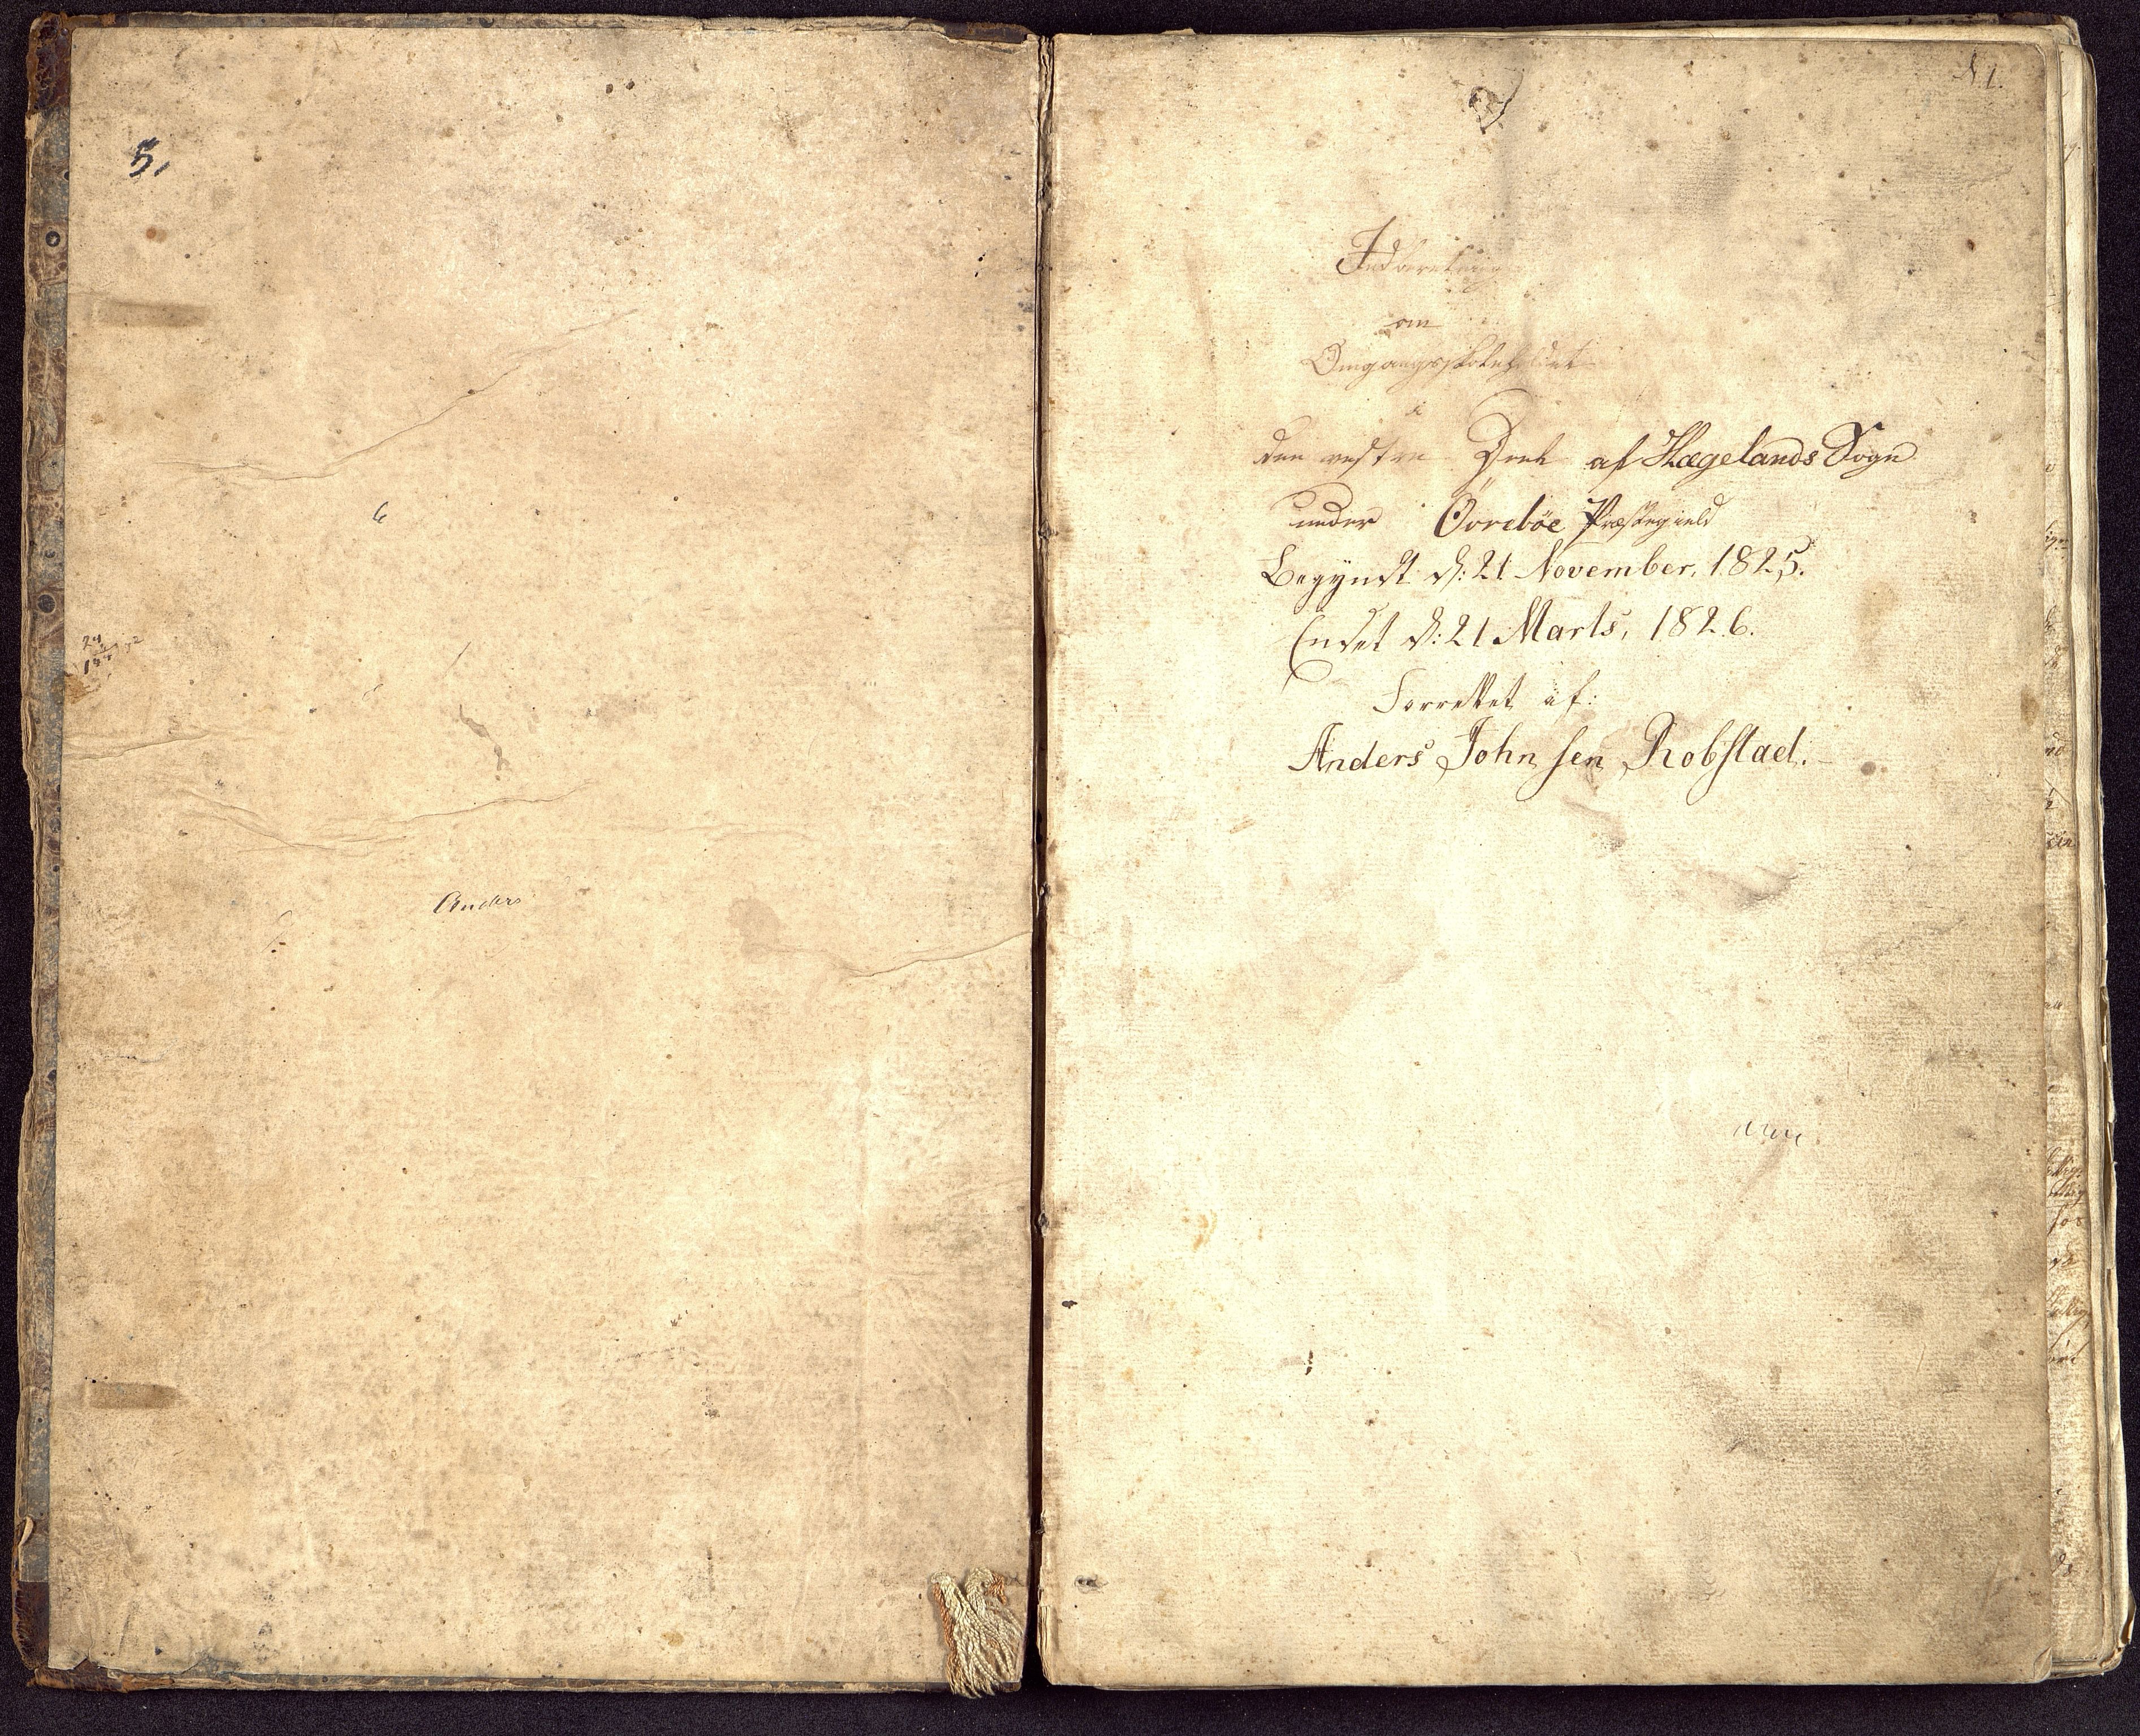 5.
6
24
Anders
1.
Indberetning
om
Omgangsskoleholdet
i
den vestre Deel af Hægelands Sogn
under Övrebőe Præstegield
Begÿndt d: 21 November, 1825.
Endet d: 21 Marts, 1826.
Forrettet af:
Anders Johnsen Robstad.